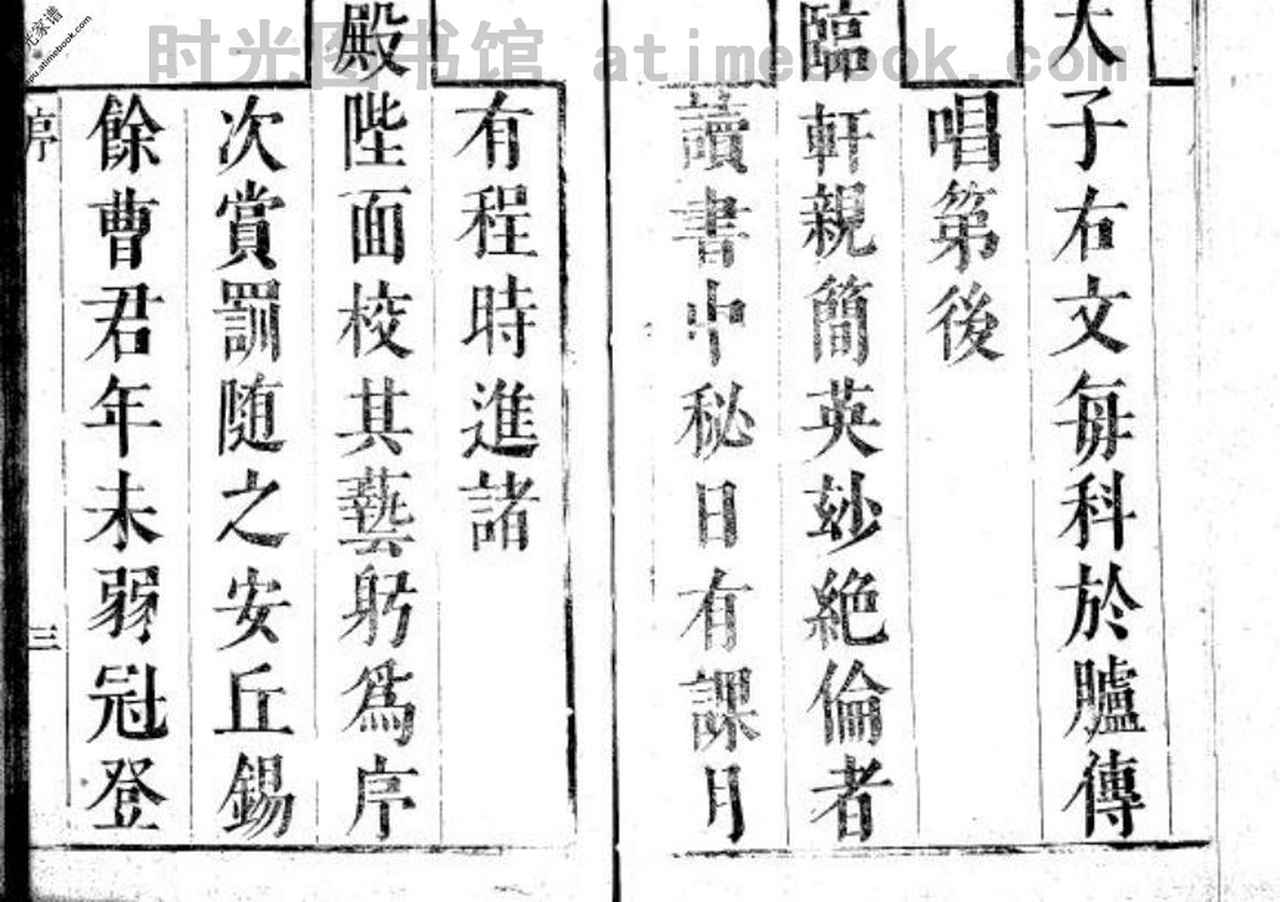 天子右文每科於臚傳
唱第後
臨軒親簡英玅絶倫者
讀書中秘日有課月
有程時進諸
殿陛面校其藝躬爲序
次賞罰随之安丘錫
餘曹君年未弱冠登
三
时光图书馆 atimebook.com
光家谱
.atimebook.com